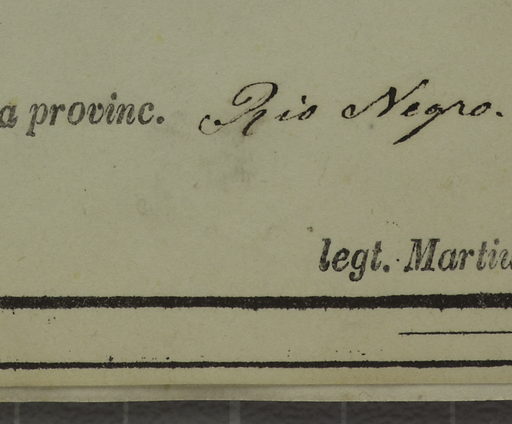 a provinc. Rio Negro.
legt. Martiu